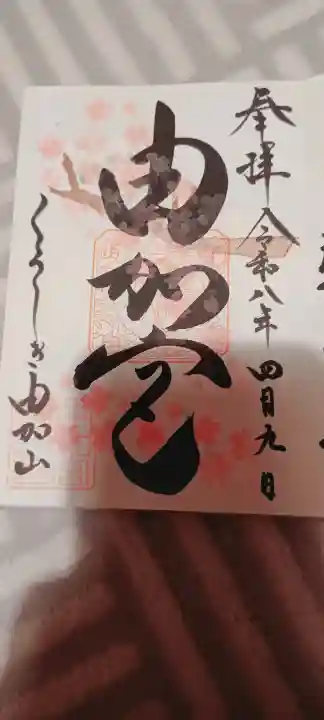 奉拝
令和八年四月九日
由加宮
くらしき由加山